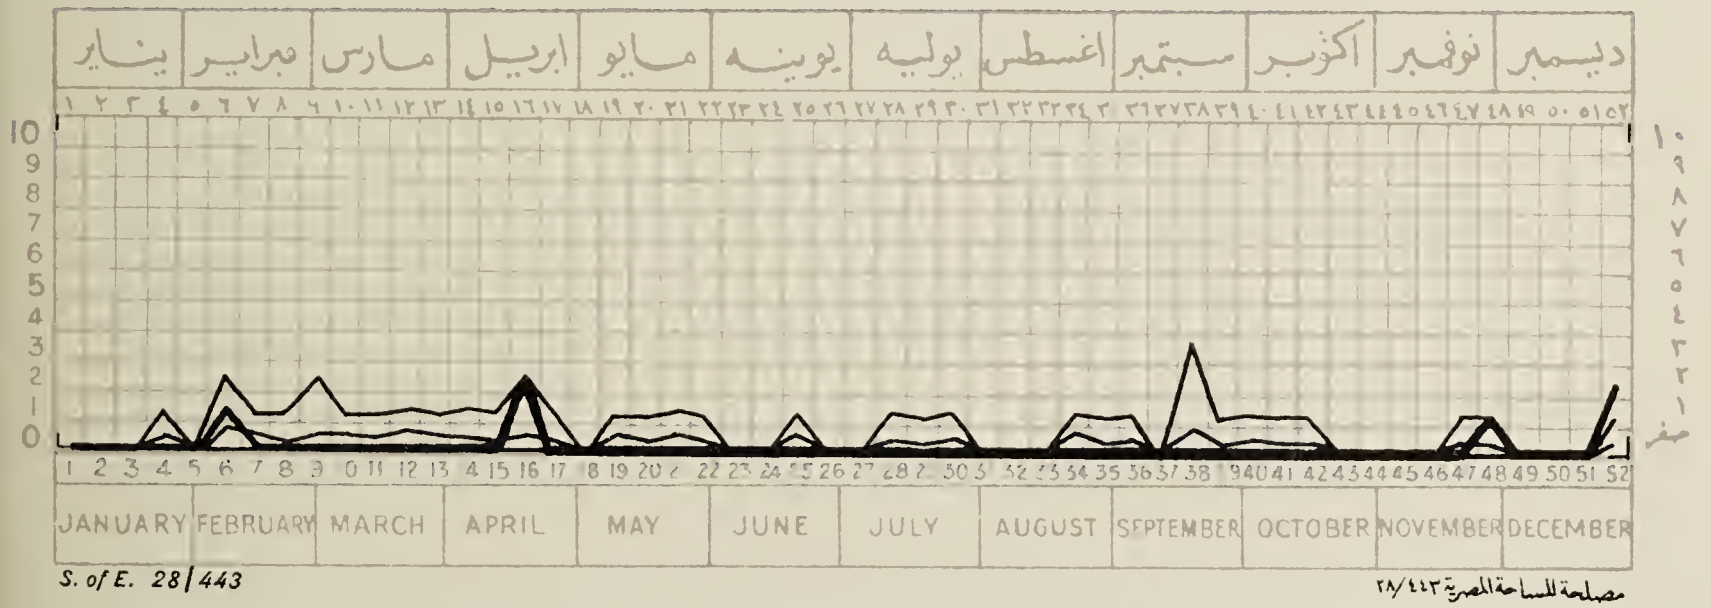 يناير فبراير مارس ابريل مايو يونيه يوليه اغسطس سبتمبر اكتوبر نوفمبر ديسمبر
١ ٢ ٣ ٤ ٥ ٦ ٧ ٨ ٩ ١٠ ١١ ١٢ ١٣ ١٤ ١٥ ١٦ ١٧ ١٨ ١٩ ٢٠ ٢١ ٢٢ ٢٣ ٢٤ ٢٥ ٢٦ ٢٧ ٢٨ ٢٩ ٣٠ ٣١ ٣٢ ٣٣ ٣٤ ٣ ٣٦ ٣٧ ٣٨ ٣٩ ٤٠ ٤١ ٤٢ ٤٣ ٤٤ ٤٥ ٤٦ ٤٧ ٤٨ ٤٩ ٥٠ ٥١ ٥٢
10 ١٠
9 ٩
8 ٨
7 ٧
6 ٦
5 ٥
4 ٤
3 ٣
2 ٢
1 ١
0 صفر
1 2 3 4 5 6 7 8 9 0 11 12 13 4 15 16 17 18 19 20 2 22 23 24 25 26 27 28 2 30 3 32 33 34 35 36 37 38 39 40 41 42 43 44 45 46 47 48 49 50 51 52
JANUARY FEBRUARY MARCH APRIL MAY JUNE JULY AUGUST SEPTEMBER OCTOBER NOVEMBER DECEMBER
S. of E. 28/443 مصلحة المساحة المصرية ٢٨/٤٤٣